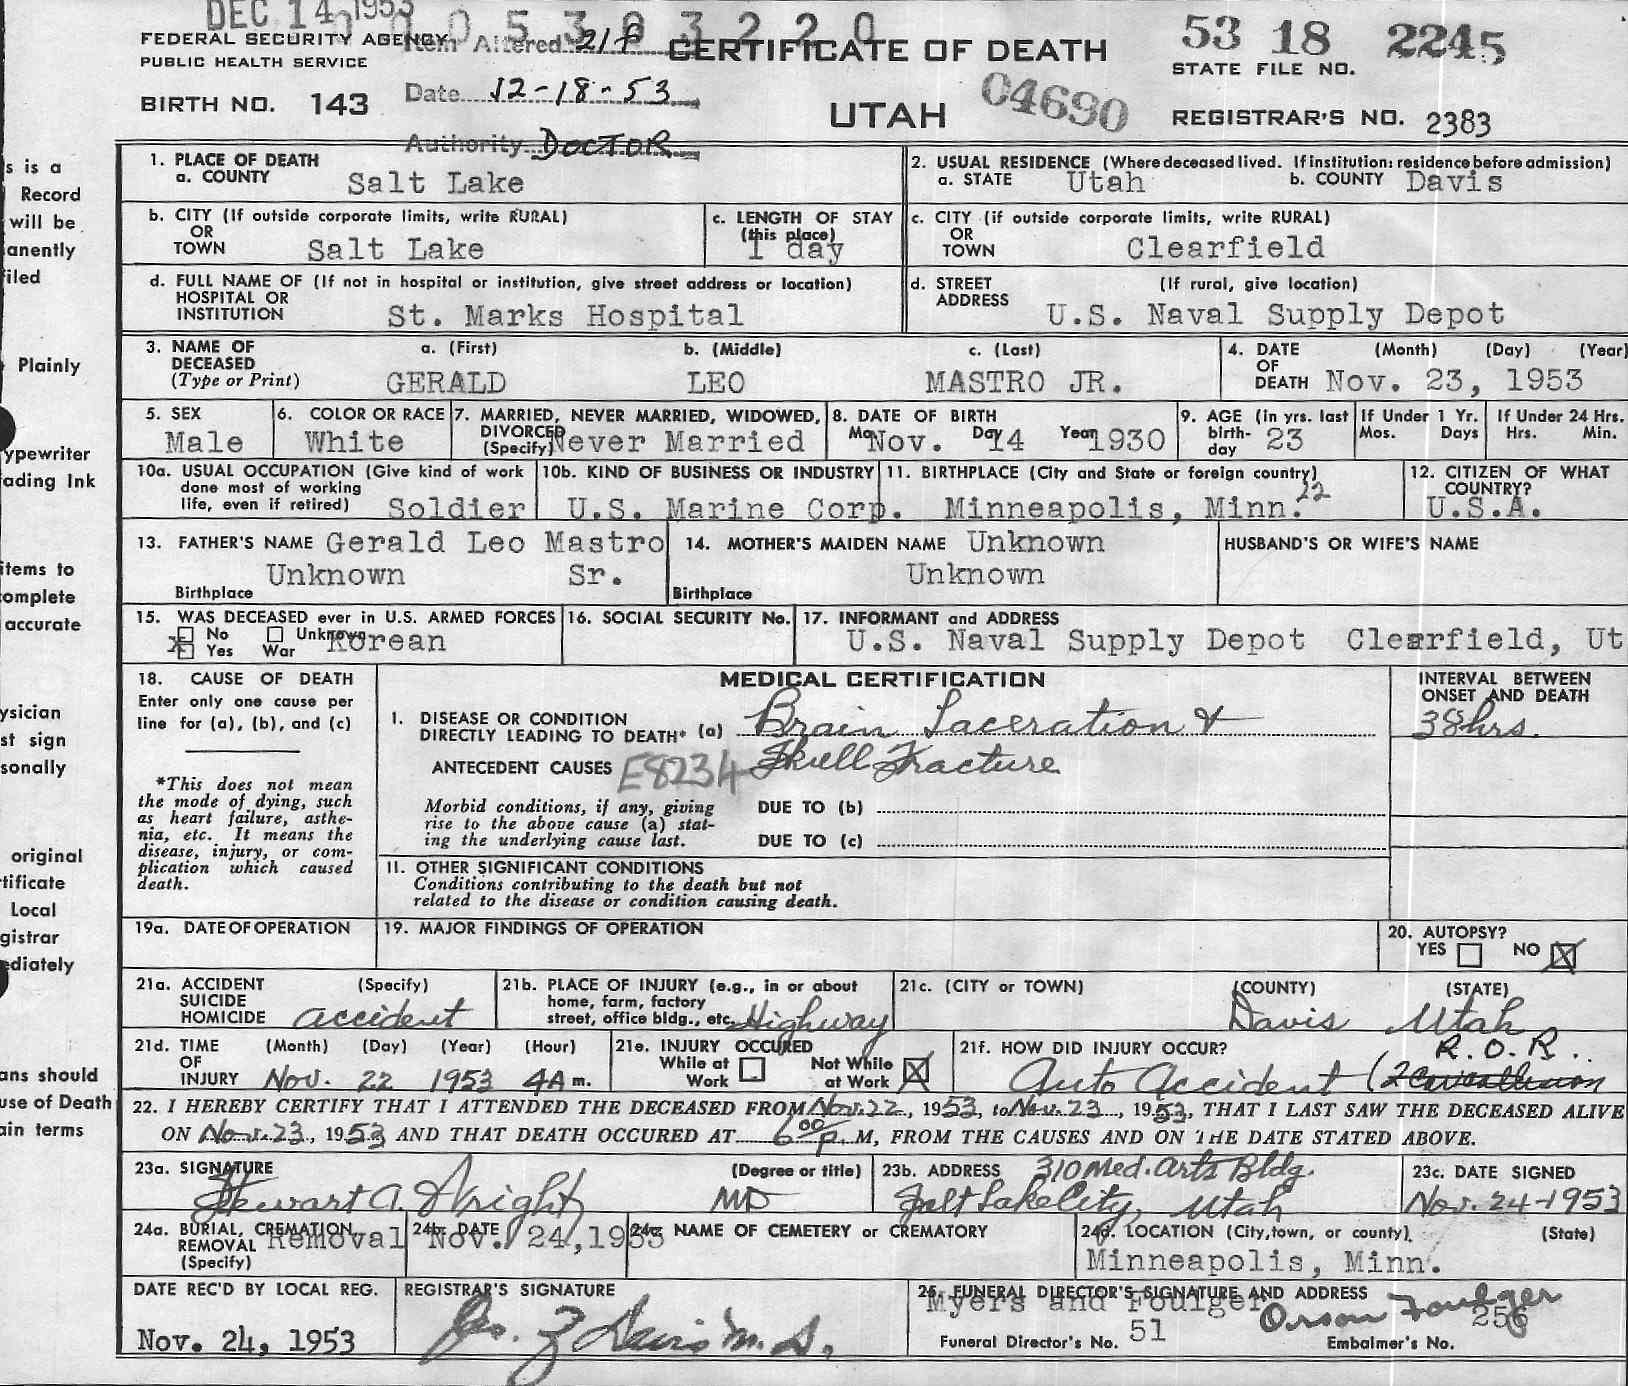 DEC 14 1953
0 5 3 0 3 2 2 0
53 18 2245
FEDERAL SECURITY AGENCY
Item Altered 21f
CERTIFICATE OF DEATH
STATE FILE NO.
PUBLIC HEALTH SERVICE
Date 12-18-53
04690
BIRTH NO. 143
UTAH
REGISTRAR'S NO. 2383
Authority DOCTOR
s is a
Record
will be
anently
iled
Plainly
ypewriter
ading Ink
items to
omplete
accurate
ysician
st sign
sonally
original
tificate
Local
gistrar
ediately
ans should
use of Death
ain terms
1. PLACE OF DEATH
a. COUNTY Salt Lake
2. USUAL RESIDENCE (Where deceased lived. If institution: residence before admission)
a. STATE Utah b. COUNTY Davis
b. CITY (If outside corporate limits, write RURAL)
OR
TOWN Salt Lake
c. LENGTH OF STAY
(this place)
1 day
c. CITY (if outside corporate limits, write RURAL)
OR
TOWN Clearfield
d. FULL NAME OF (If not in hospital or institution, give street address or location)
HOSPITAL OR
INSTITUTION St. Marks Hospital
d. STREET (If rural, give location)
ADDRESS U.S. Naval Supply Depot
3. NAME OF a. (First) b. (Middle) c. (Last)
DECEASED
(Type or Print) GERALD LEO MASTRO JR.
4. DATE (Month) (Day) (Year)
OF
DEATH Nov. 23, 1953
5. SEX
Male
6. COLOR OR RACE
White
7. MARRIED, NEVER MARRIED, WIDOWED,
DIVORCED
(Specify) Never Married
8. DATE OF BIRTH
Mo. Nov. Day 14 Year 1930
9. AGE (in yrs. last
birth-
day 23
If Under 1 Yr.
Mos. Days
If Under 24 Hrs.
Hrs. Min.
10a. USUAL OCCUPATION (Give kind of work
done most of working
life, even if retired) Soldier
10b. KIND OF BUSINESS OR INDUSTRY
U.S. Marine Corp.
11. BIRTHPLACE (City and State or foreign country)
Minneapolis, Minn. 22
12. CITIZEN OF WHAT
COUNTRY?
U.S.A.
13. FATHER'S NAME Gerald Leo Mastro
Unknown Sr.
Birthplace
14. MOTHER'S MAIDEN NAME Unknown
Unknown
Birthplace
HUSBAND'S OR WIFE'S NAME
15. WAS DECEASED ever in U.S. ARMED FORCES
No Unknown
x Yes War Korean
16. SOCIAL SECURITY No.
17. INFORMANT and ADDRESS
U.S. Naval Supply Depot Clearfield, Ut
18. CAUSE OF DEATH
Enter only one cause per
line for (a), (b), and (c)
*This does not mean
the mode of dying, such
as heart failure, asthe-
nia, etc. It means the
disease, injury, or com-
plication which caused
death.
MEDICAL CERTIFICATION
I. DISEASE OR CONDITION
DIRECTLY LEADING TO DEATH* (a) Brain Laceration &
ANTECEDENT CAUSES E8234 Skull Fracture
Morbid conditions, if any, giving
rise to the above cause (a) stat-
ing the underlying cause last.
DUE TO (b)
DUE TO (c)
II. OTHER SIGNIFICANT CONDITIONS
Conditions contributing to the death but not
related to the disease or condition causing death.
INTERVAL BETWEEN
ONSET AND DEATH
38 hrs.
19a. DATE OF OPERATION
19. MAJOR FINDINGS OF OPERATION
20. AUTOPSY?
YES NO X
21a. ACCIDENT (Specify)
SUICIDE
HOMICIDE accident
21b. PLACE OF INJURY (e.g., in or about
home, farm, factory
street, office bldg., etc. Highway
21c. (CITY or TOWN) (COUNTY) (STATE)
Davis Utah
21d. TIME (Month) (Day) (Year) (Hour)
OF
INJURY Nov. 22 1953 4A m.
21e. INJURY OCCURED
While at Work Not While at Work X
21f. HOW DID INJURY OCCUR? R.O.R..
Auto Accident (2 car collision
22. I HEREBY CERTIFY THAT I ATTENDED THE DECEASED FROM Nov. 22, 1953, to Nov. 23, 1953, THAT I LAST SAW THE DECEASED ALIVE
ON Nov. 23, 1953 AND THAT DEATH OCCURED AT 6 00 P. M, FROM THE CAUSES AND ON THE DATE STATED ABOVE.
23a. SIGNATURE (Degree or title)
Stewart A. Wright MD
23b. ADDRESS 310 Med. Arts Bldg.
Salt Lake City, Utah
23c. DATE SIGNED
Nov. 24-1953
24a. BURIAL, CREMATION
REMOVAL Removal
(Specify)
24b. DATE
Nov. 24, 1953
24c. NAME OF CEMETERY or CREMATORY
24d. LOCATION (City, town, or county). (State)
Minneapolis, Minn.
DATE REC'D BY LOCAL REG.
Nov. 24, 1953
REGISTRAR'S SIGNATURE
Geo. Z Davis M.D.
25. FUNERAL DIRECTOR'S SIGNATURE AND ADDRESS
Myers and Foulger Orson Foulger
Funeral Director's No. 51 Embalmer's No. 256